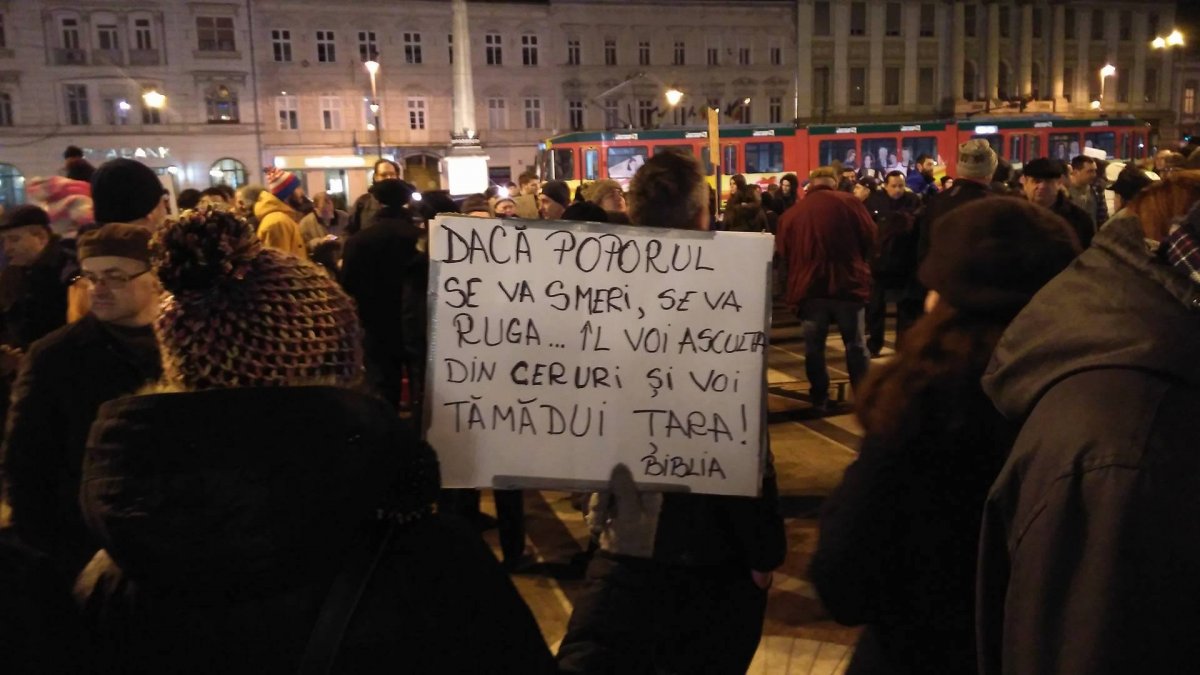 DACĂ POPORUL
SE VA SMERI, SE VA
RUGA... ÎL VOI ASCULTA
DIN CERURI ŞI VOI
TĂMĂDUI ŢARA!
BIBLIA